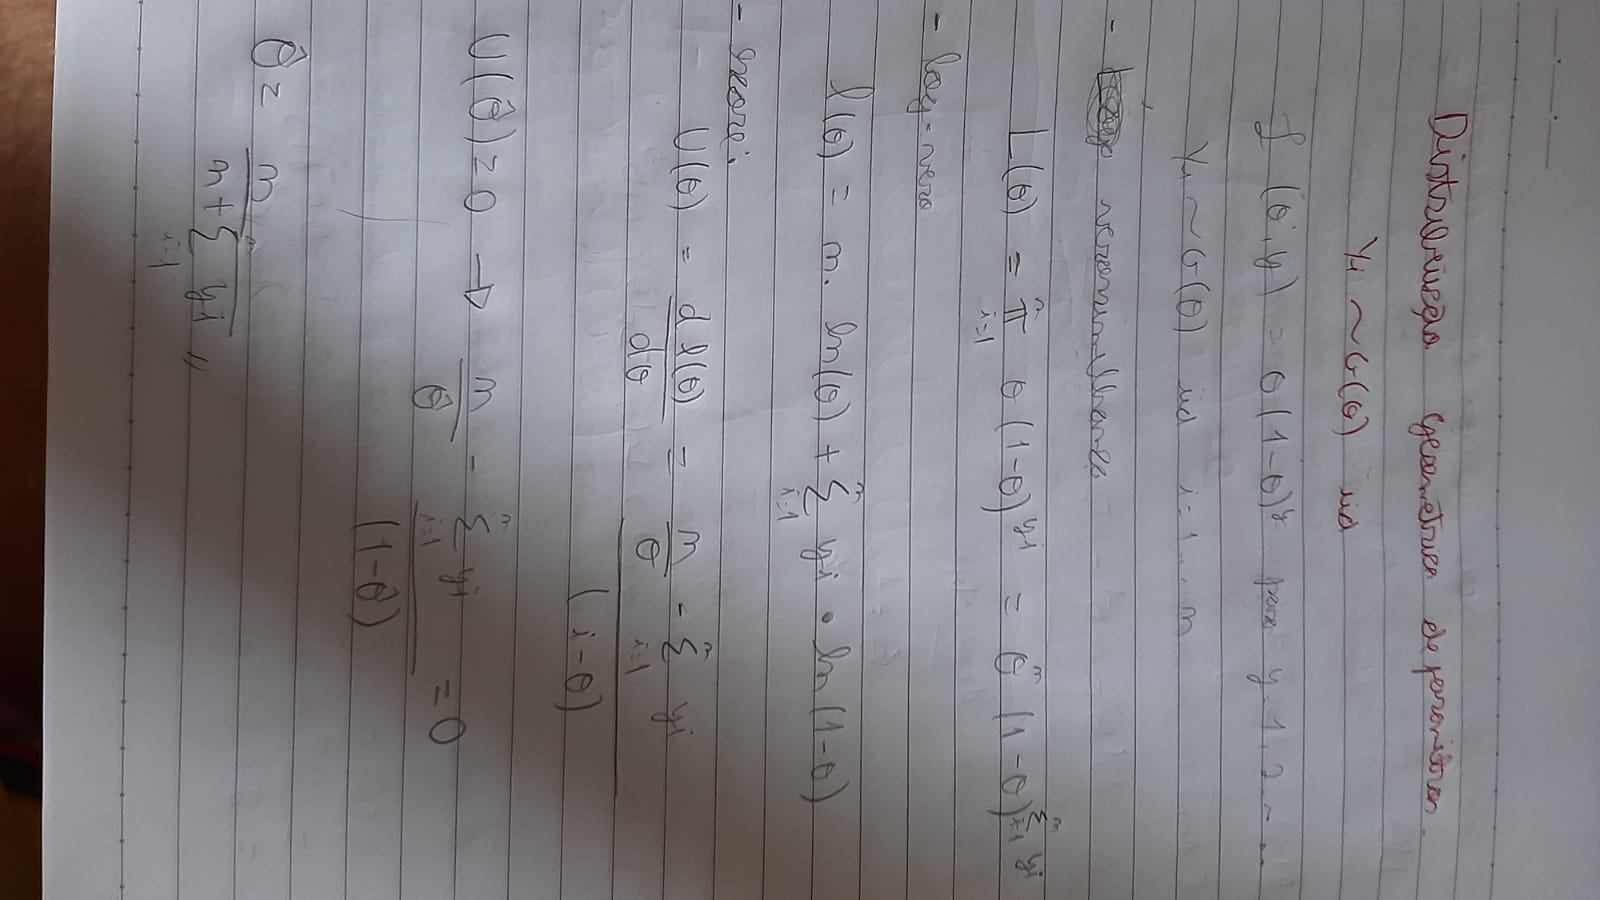 Distribuição geométrica de parametros.
Yi ~ G(θ) iid
f (θ, y) = θ(1-θ)^y para y = 1, 2 ...
Yi ~ G(θ) iid i=1...n
- verossimilhança
L(θ) = π_{i=1}^{n} θ(1-θ)^{yi} = θ^n (1-θ)^{Σ_{i=1}^{n} yi}
- log-vero
l(θ) = n. ln(θ) + Σ_{i=1}^{n} yi • ln(1-θ)
- score:
U(θ) = d l(θ)/dθ = n/θ - Σ_{i=1}^{n} yi/(1-θ)
U(θ̂)=0 → n/θ̂ - Σ_{i=1}^{n} yi/(1-θ̂) = 0
θ̂ = n/(n+Σ_{i=1}^{n} yi) //